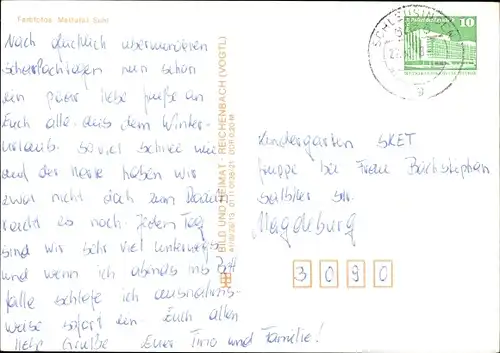 Farbfotos: Mathalka, Suhl
Nach glücklich überwundenen
Scharlachtagen nun schon
ein paar liebe Grüße an
Euch alle aus dem Winter-
urlaub. So viel Schnee wie
auf der Karte haben wir
zwar nicht doch zum
reicht es noch. Jeden Tag
sind wir sehr viel unterwegs
und wenn ich abends ins Bett
falle schlafe ich ausnahms-
weise sofort ein. Euch allen
liebe Grüße Euer Timo und Familie!
BILD UND HEIMAT · REICHENBACH (VOGTL)
DDR 0,20 M
SCHLEUSINGEN
10
Kindergarten SKET
Gruppe bei Frau Buchstephan
Salbker Str.
Magdeburg
3090